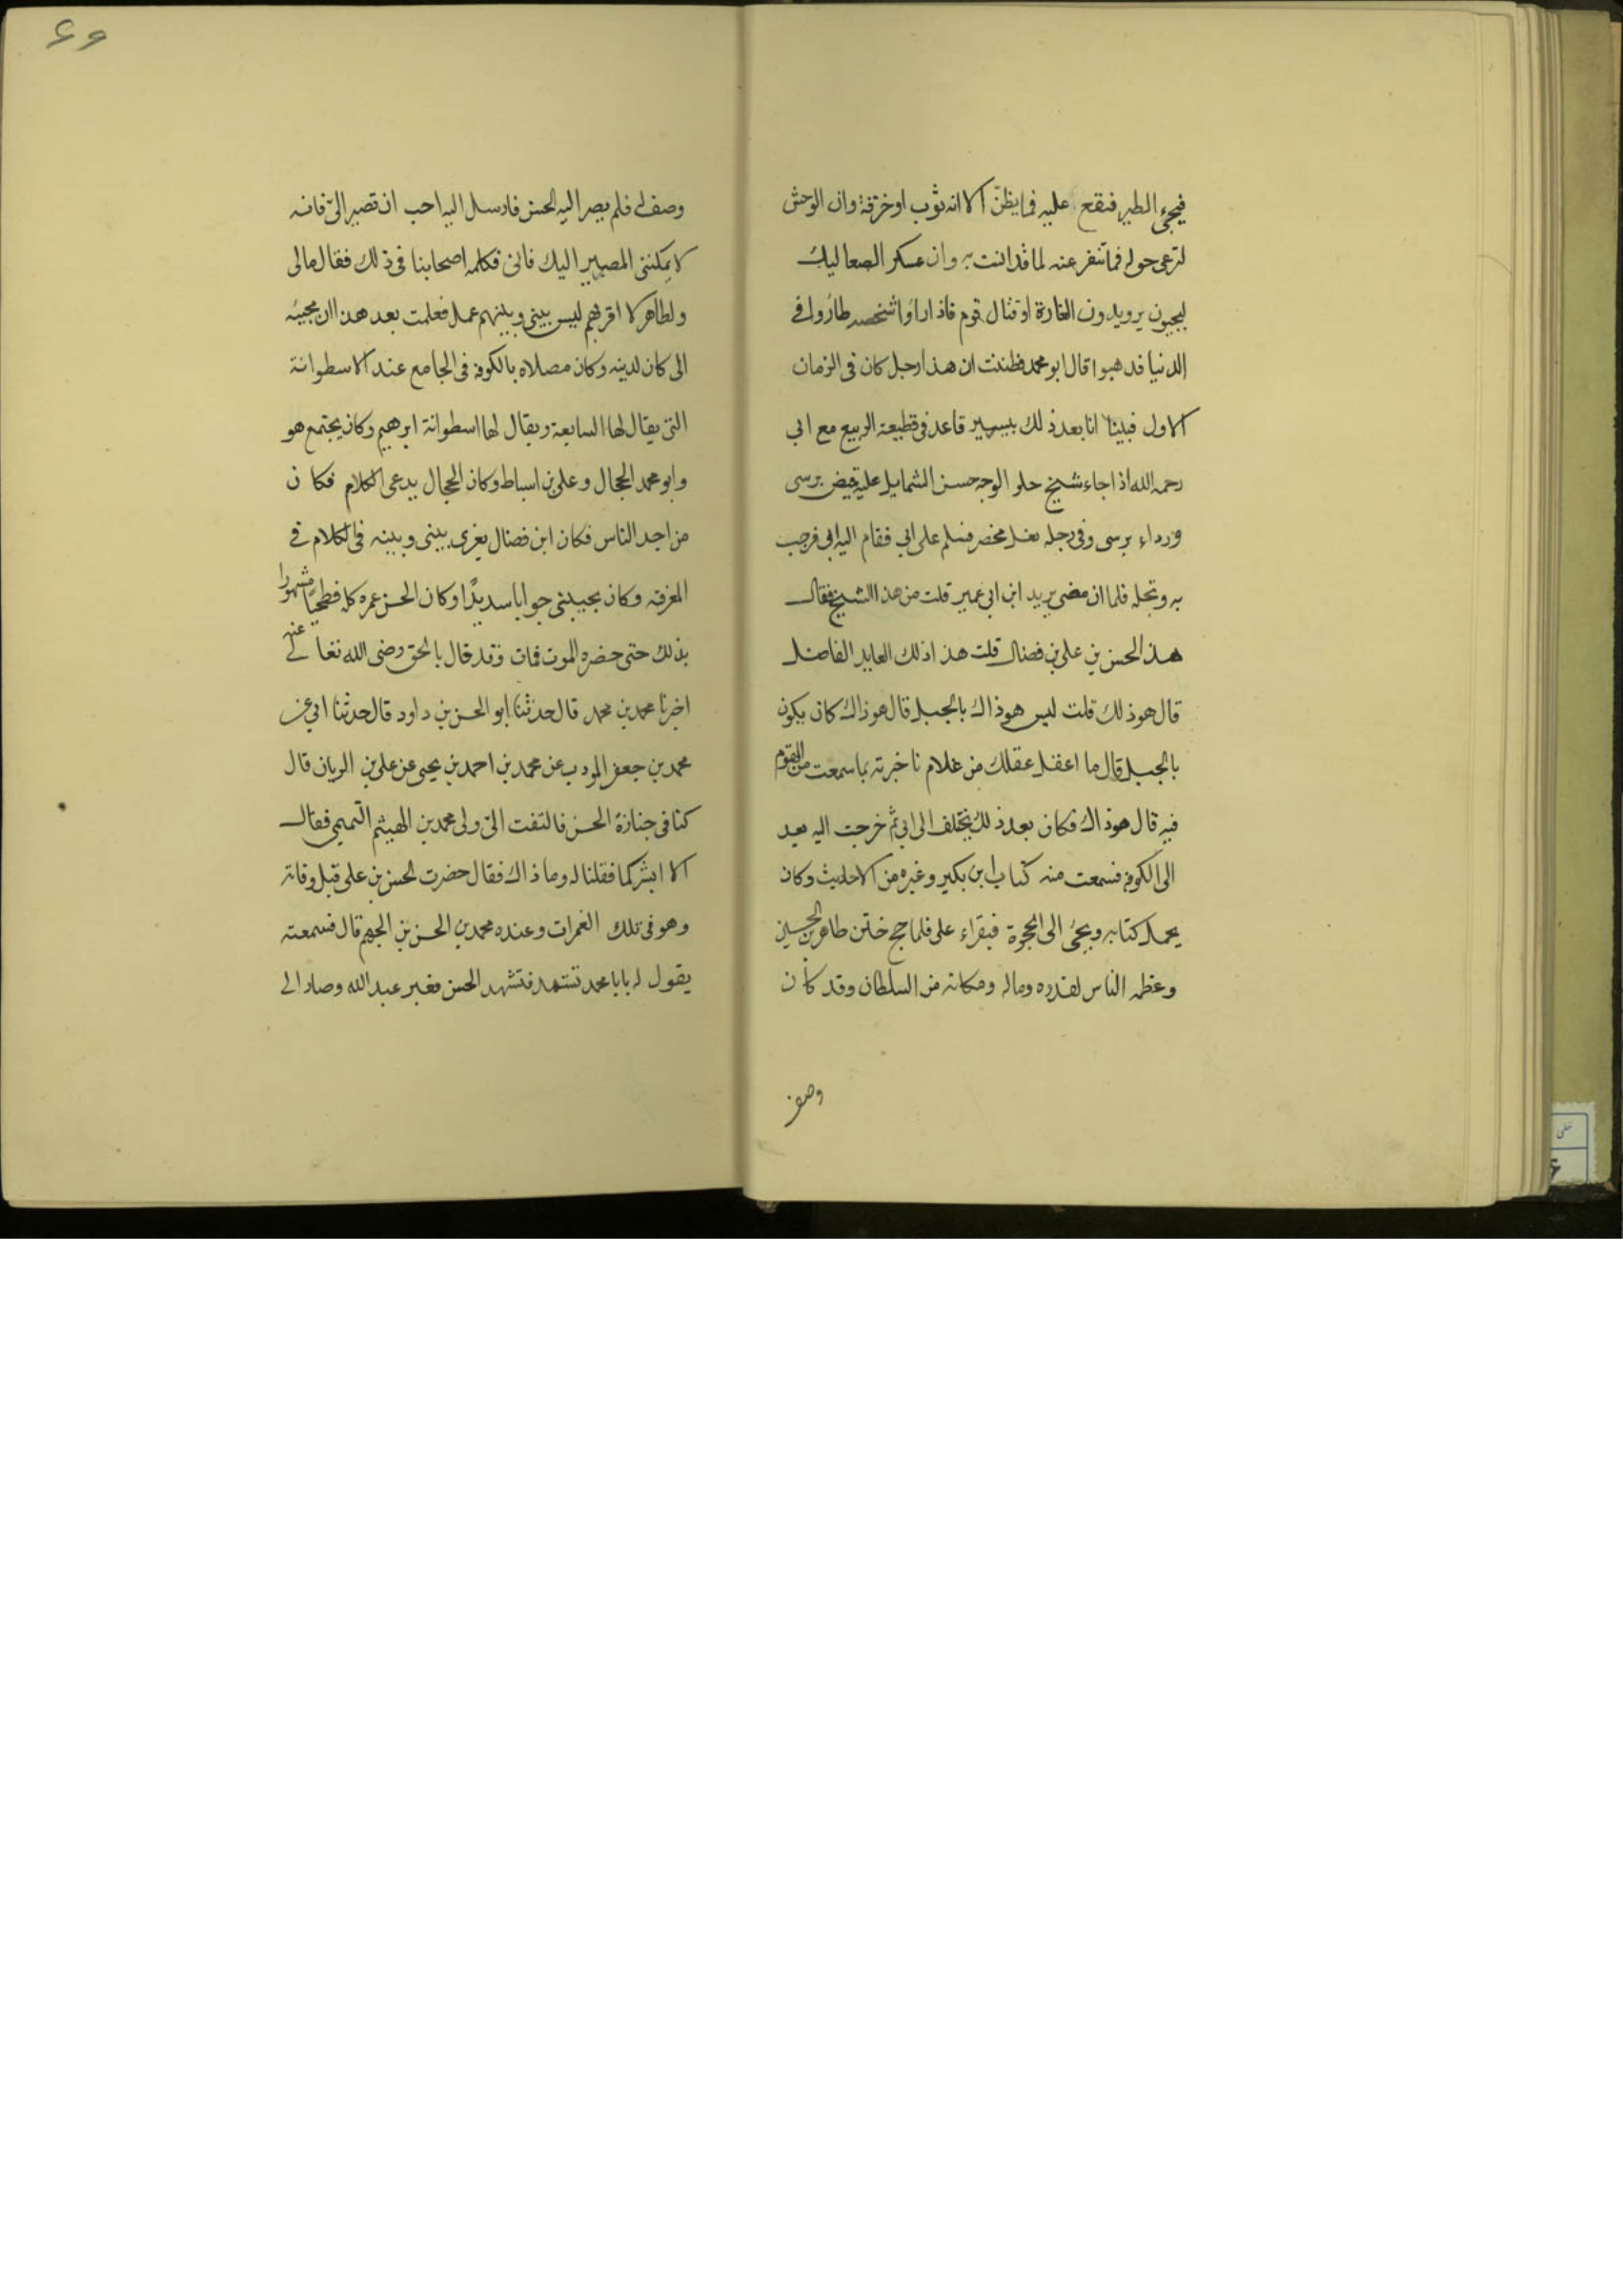 فيجيء الطير فتقع عليه فما يظنّ الا انه ثوب او خرقة وان الوحش
لترعى حوله فما تنفر عنه لما قد انست به وان عسكر الصعاليك
ليجيون يريدون الغارة او قتال قوم فاذا راوا شخصه طاروا في
الدنيا فدهبوا قال ابو محمد فظننت ان هذا رجل كان في الزمان
الاول فبينا انا بعد ذلك بيسير قاعد في قطيعة الربيع مع ابي
رحمه الله اذا جاء شيخ حلو الوجه حسن الشمايل عليه قميص نرسى
ورداء نرسى وفي رجله نعل مخصر فسلم على ابي فقام اليه ابي فرحب
به وبجله فلما ان مضى يريد ابن ابي عمير قلت من هذا الشيخ فقال
هذا الحسن بن علي بن فضال قلت هذا ذلك العابد الفاضل
قال هو ذلك قلت ليس هو ذاك بالجبل قال هو ذاك كان يكون
بالجبل قال ما اغفل عقلك من غلام فاخبرته بما سمعت من القوم
فيه قال هو ذاك فكان بعد ذلك يختلف الى ابي ثم خرجت اليه بعد
الى الكوفة فسمعت منه كتاب ابن بكير وغيره من الاحاديث وكان
يحمل كتابه ويجئ الى الحجرة فيقراء علي فلما حج ختن طاهر بن الحسين
وعظمه الناس لقدره وماله ومكانه من السلطان وقد كان
وصف
۶۶
وصف له فلم يصر اليه الحسن فارسل اليه احب ان تصير الىّ فانه
لا يمكننى المصير اليك فابى فكلمه اصحابنا في ذلك فقال مالى
ولطاهر لا اقربهم ليس بيني وبينهم عمل فعلمت بعد هذا ان مجيئه
الى كان لدينه وكان مصلاه بالكوفة في الجامع عند الاسطوانة
التى يقال لها السابعة ويقال لها اسطوانة ابرهيم وكان يجتمع هو
وابو محمد الحجال وعلي بن اسباط وكان الحجال يدعى الكلام فكان
من اجدل الناس فكان ابن فضال يغرى بينى وبينه في الكلام في
المعرفة وكان يجيبنى جوابا سديدًا وكان الحسن عمره كله فطحيًا مشهورا
بذلك حتى حضره الموت فمات وقد قال بالحق رضى الله تعالى عنه
اخبرنا محمد بن محمد قال حدثنا ابو الحسن بن داود قال حدثنا ابي عن
محمد بن جعفر المودب عن محمد بن احمد بن يحيى عن علي بن الريان قال
كنا في جنازة الحسن فالتفت الىّ والى محمد بن الهيثم التميمي فقال
الا ابشركما فقلنا له وما ذاك فقال حضرت الحسن بن علي قبل وفاته
وهو في تلك الغمرات وعنده محمد بن الحسن بن الجهم قال فسمعته
يقول له يابا محمد تشهد فتشهد الحسن فعبر عبد الله وصار الى